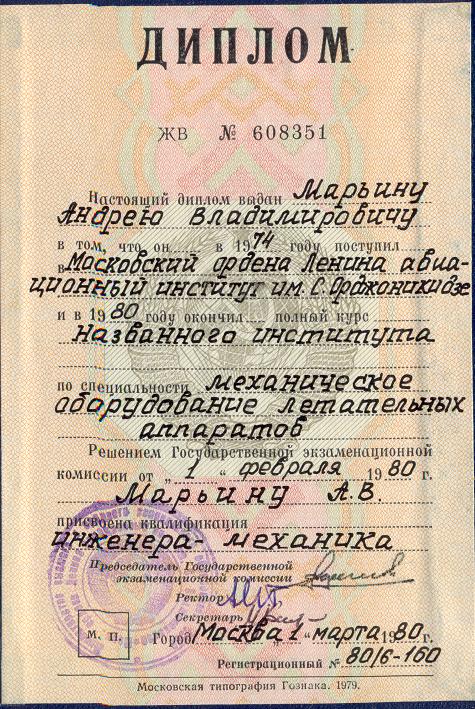 ДИПЛОМ
ЖВ № 608351
Настоящий диплом выдан Марьину
Андрею Владимировичу
в том, что он в 1974 году поступил
в Московский ордена Ленина авиа-
ционный институт им. С. Орджоникидзе
и в 1980 году окончил полный курс
названного института
по специальности механическое
оборудование летательных
аппаратов
Решением Государственной экзаменационной
комиссии от „1“ февраля 1980 г.
Марьину А.В.
присвоена квалификация
инженера-механика
Председатель Государственной
экзаменационной комиссии
Ректор
Секретарь
М. П.
Город Москва „1“ марта 1980 г.
Регистрационный № 80/6-160
Московская типография Гознака. 1979.